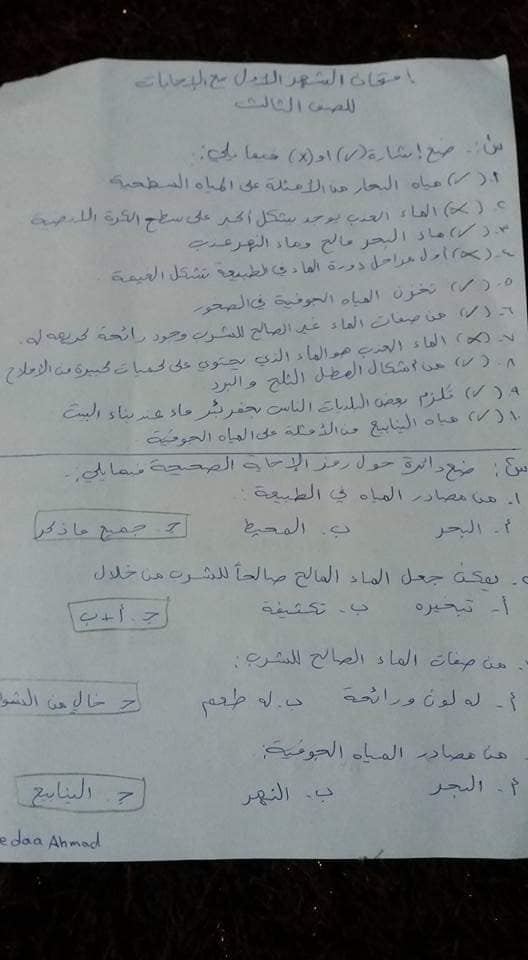 امتحان الشهر الاول مع الاجابات
للصف الثالث
س١:- ضع إشارة (✓) او (x) فيما يلي:
١. (✓) مياه البحار من الأمثلة على المياه السطحية
٢. (x) الماء العذب يوجد بشكل اكبر على سطح الكرة الارضية
٣. (✓) ماء البحر مالح وماء النهر عذب
٤. (x) أول مراحل دورة الماء في الطبيعة تشكل الغيمة
٥. (✓) تخزن المياه الجوفية في الصخور
٦. (✓) من صفات الماء غير الصالح للشرب وجود رائحة كريهة له.
٧. (x) الماء العذب هو الماء الذي يحتوي على كميات كبيرة من الاملاح
٨. (✓) من أشكال الهطل الثلج والبرد
٩. (✓) تلزم بعض البلديات الناس بحفر بئر ماء عند بناء البيت
١٠. (✓) مياه الينابيع من الأمثلة على المياه الجوفية.
س٢: ضع دائرة حول رمز الإجابة الصحيحة فيما يلي:-
١. من مصادر المياه في الطبيعة:
أ. البحر ب. المحيط ج. جميع ما ذكر
. يمكن جعل الماء المالح صالحاً للشرب من خلال
أ- تبخيره ب. تكثيفه ج. أ+ب
. من صفات الماء الصالح للشرب:
أ- له لون ورائحة ب. له طعم ج خالي من الشو
. من مصادر المياه الجوفية:
أ. البحر ب. النهر ج. الينابيع
edaa Ahmad